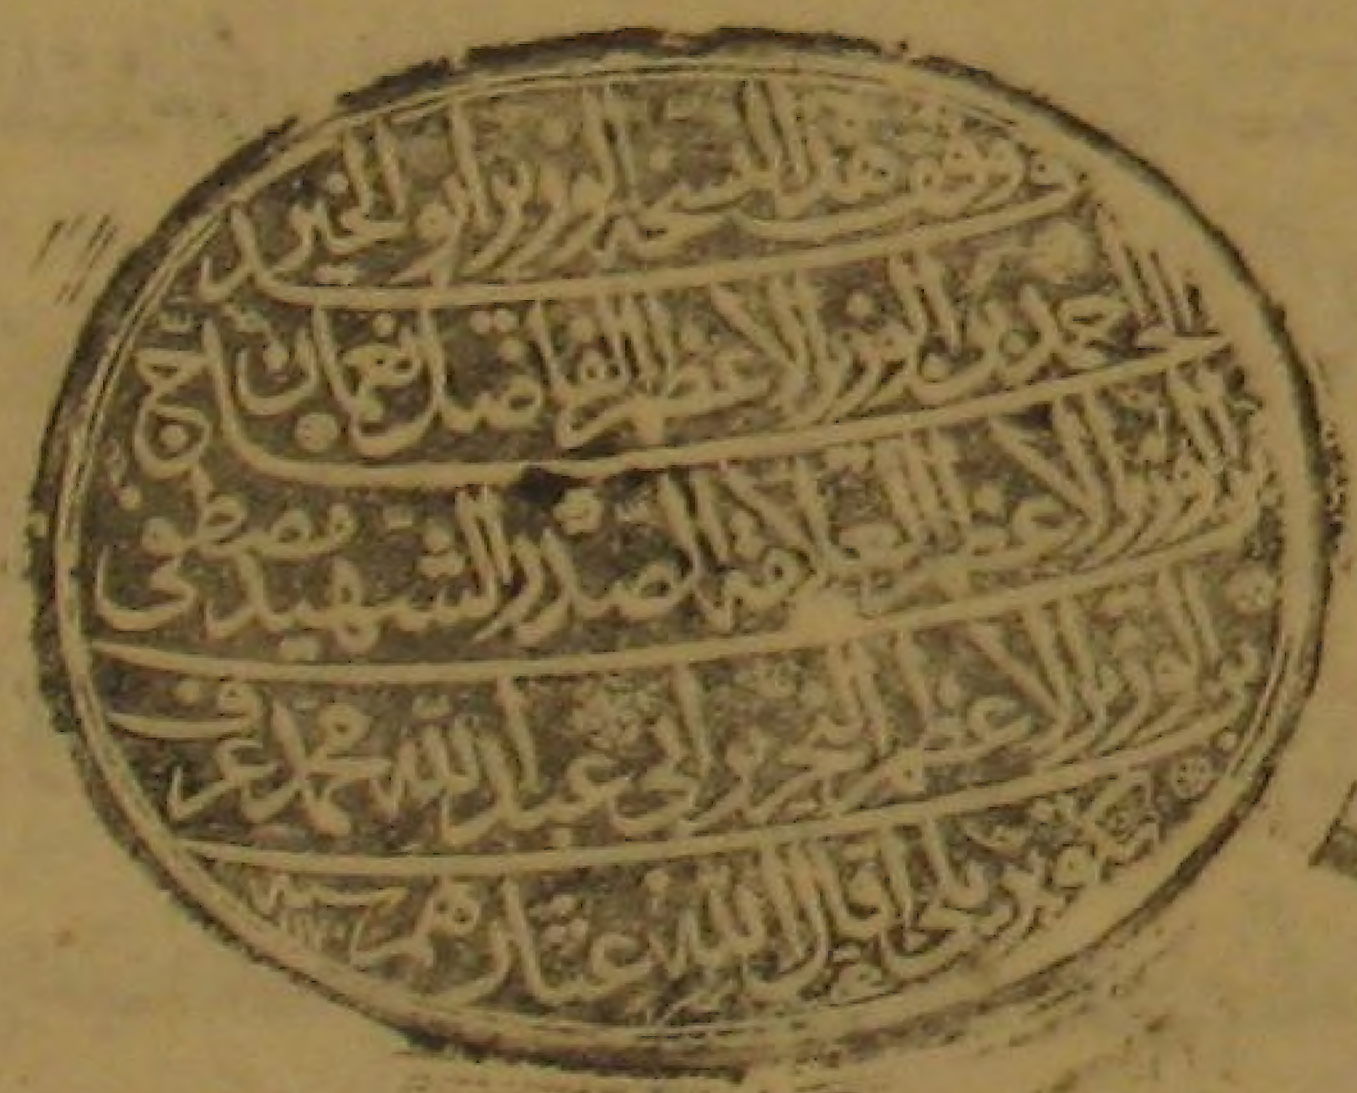 وقف هذا النسخة الوزير ابو الخير
الحاج احمد بن الوزير الاعظم الفاضل نعمان بن
الوزير الاعظم العلامة الصدر الشهيد مصطفى
بن الوزير الاعظم النحرير ابي عبد الله محمد عرف
بكوپريلى اقال الله عثارهم